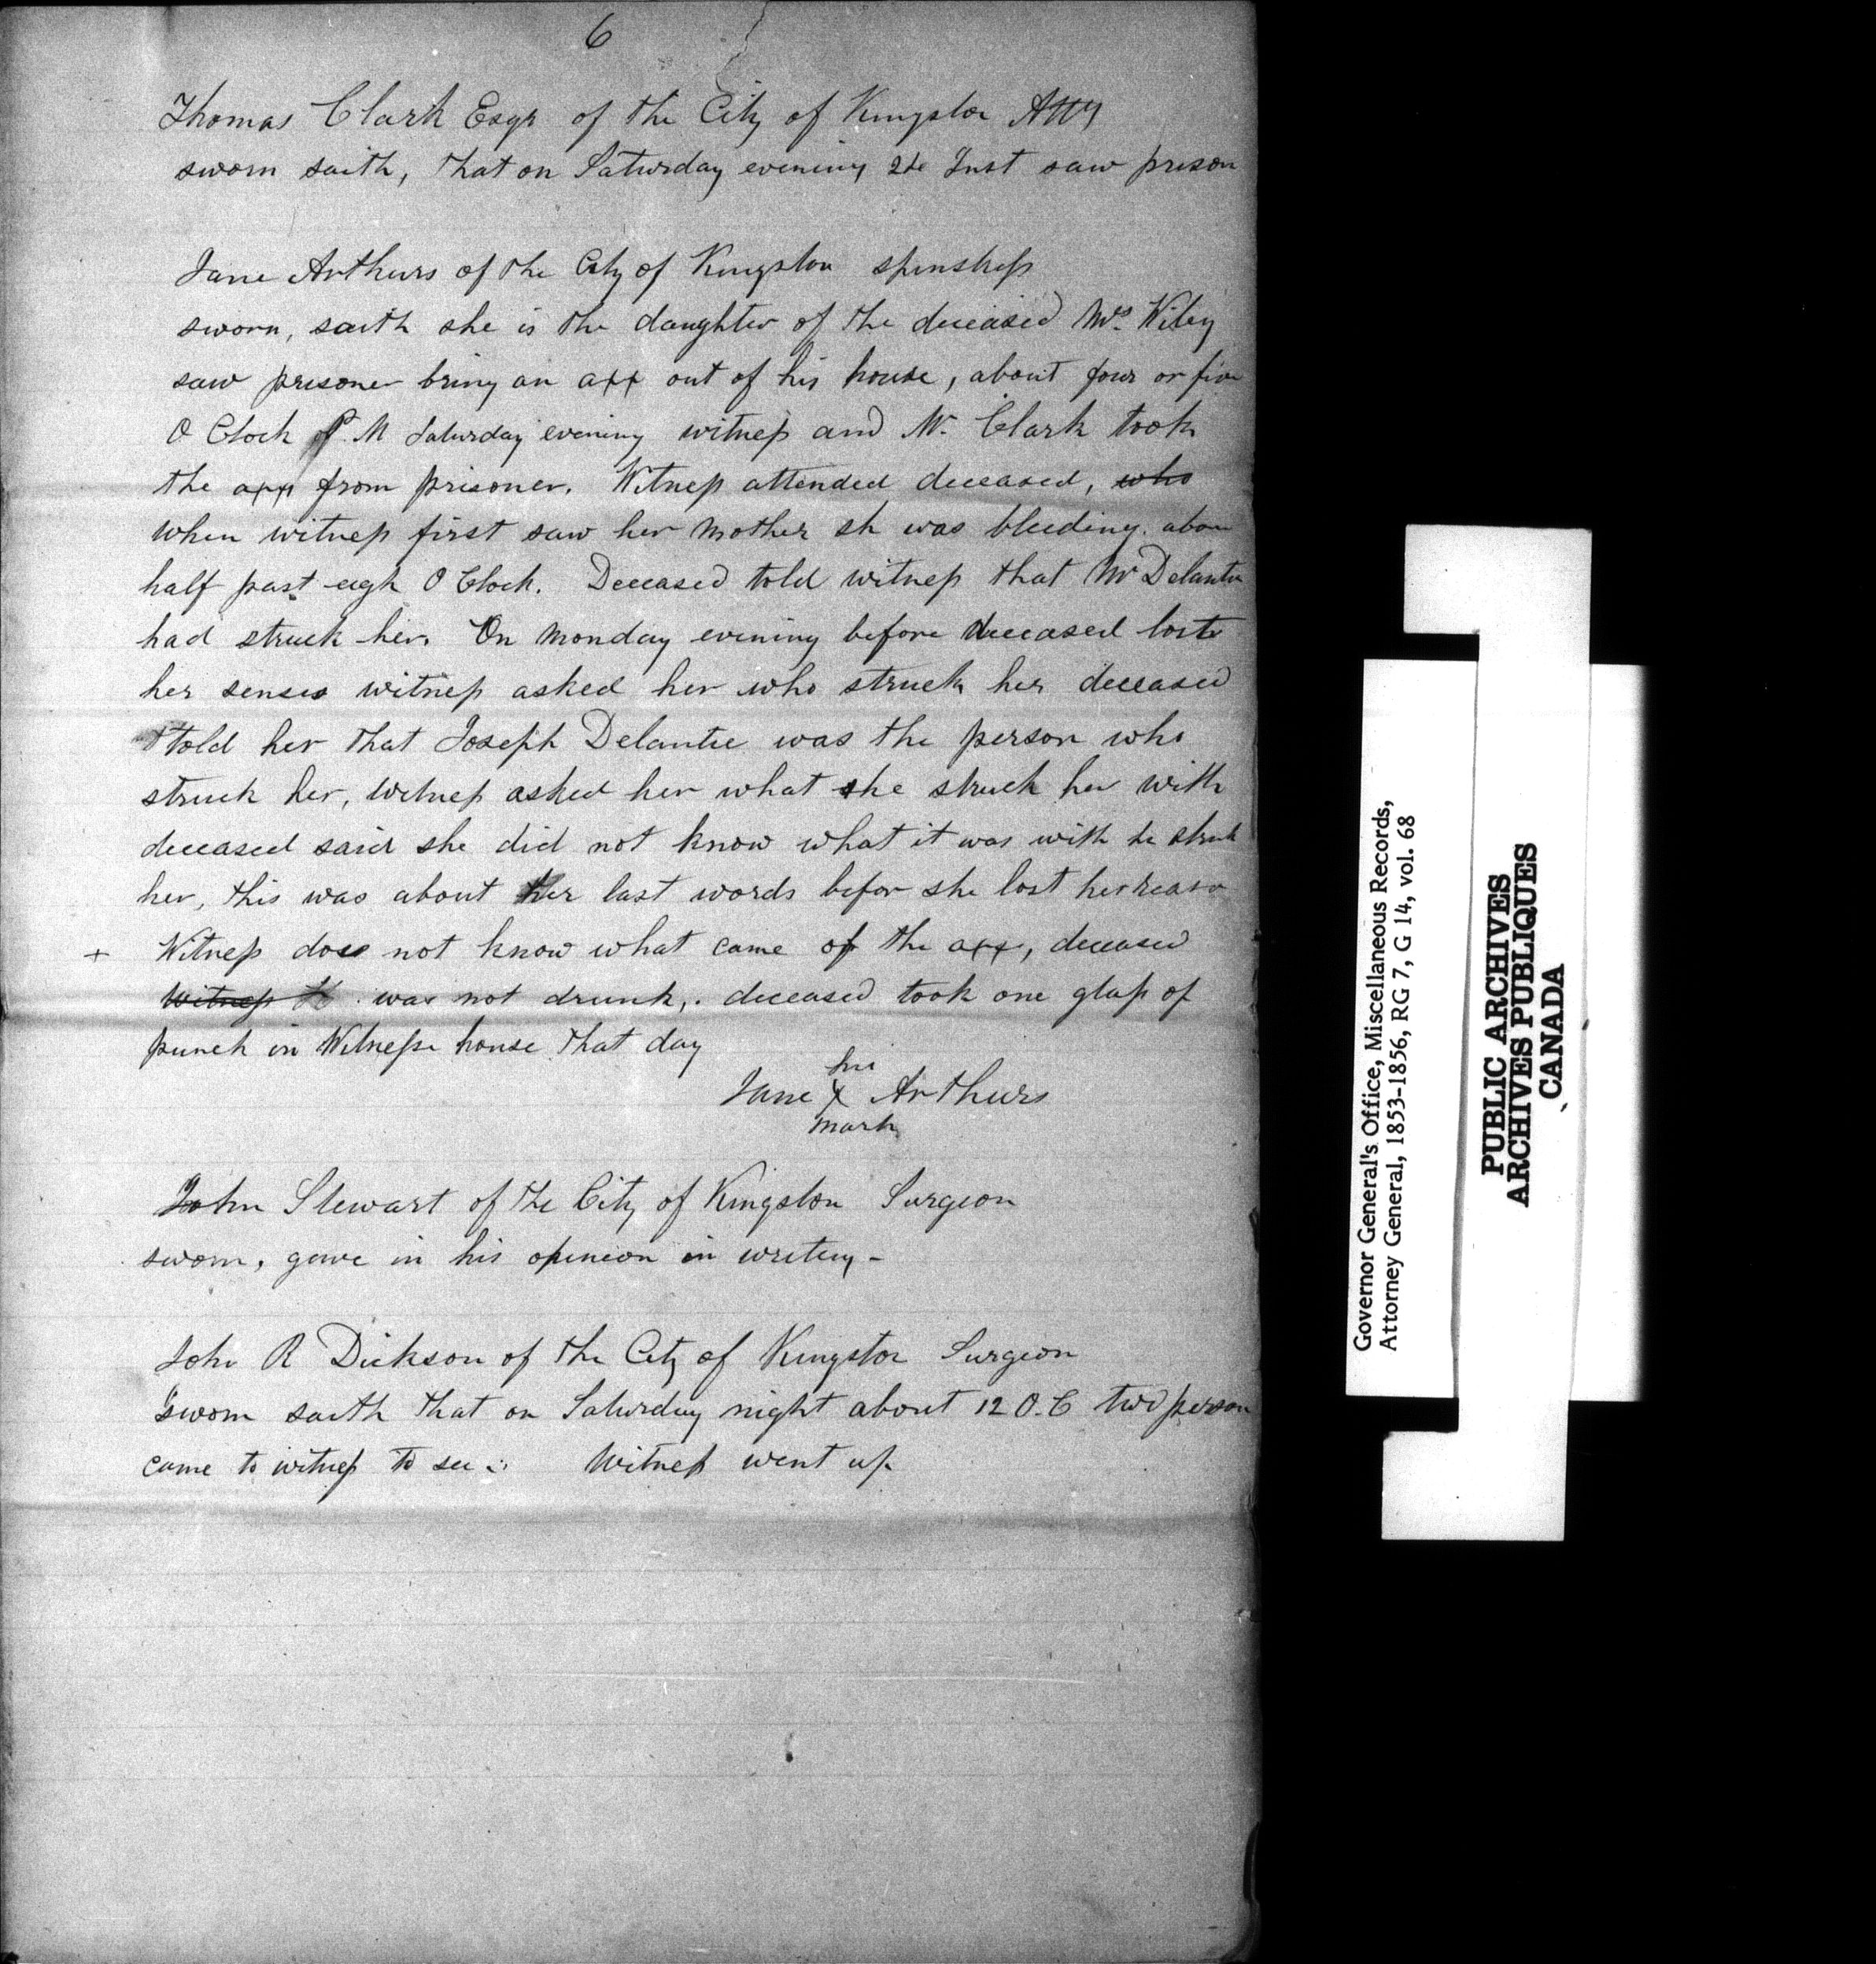 6
Thomas Clark Esqr of the City of Kingston Atty
sworn saith, that on Saturday evening Inst saw prison
Jane Arthurs of the City of Kingston spinstress
sworn, saith she is the daughter of the deceased Mrs. Wiley
saw prisoner bring an axx out of his house, about four or five
O Clock P. M Saturday evening witness and Mr. Clark took
the axx from prisoner. Witness attended deceased, who
when witness first saw her mother sh was bleeding. abou
half past eigh O Clock. Deceased told witness that Mr Delantie
had struck her. On Monday evening before deceased lost
her senses witness asked her who struck her deceased
told her that Joseph Delantie was the person who
struck her, witness asked her what she struck her with
deceased said she did not know what it was with he struck
her, this was about her last words befor she lost her reason
+ Witness does not know what came of the axx, deceased
Witness was not drunk, deceased took one glass of
punch in Witness house that day
her
Jane X Arthurs
mark
John Stewart of the City of Kingston Surgeon
sworn, gave in his opinion in writing -
John R Dickson of the City of Kingston Surgeon
sworn saith that on Saturday night about 12 O.C two person
came to witness to see Witness went up
Governor General's Office, Miscellaneous Records,
Attorney General, 1853-1856, RG 7, G 14, vol. 68
PUBLIC ARCHIVES
ARCHIVES PUBLIQUES
CANADA